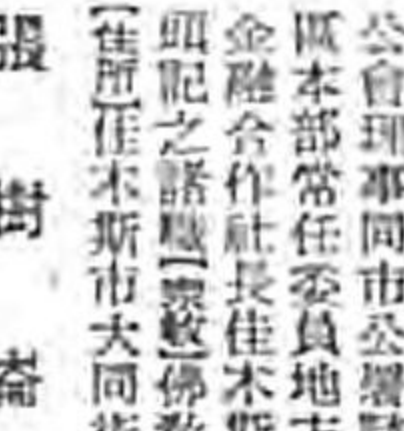 公會理事同市公署
區本部常任委員地方
金融合作社長佳木斯
昭記之諸職【宗教】佛教
【住所】佳木斯市大同街
張樹崙